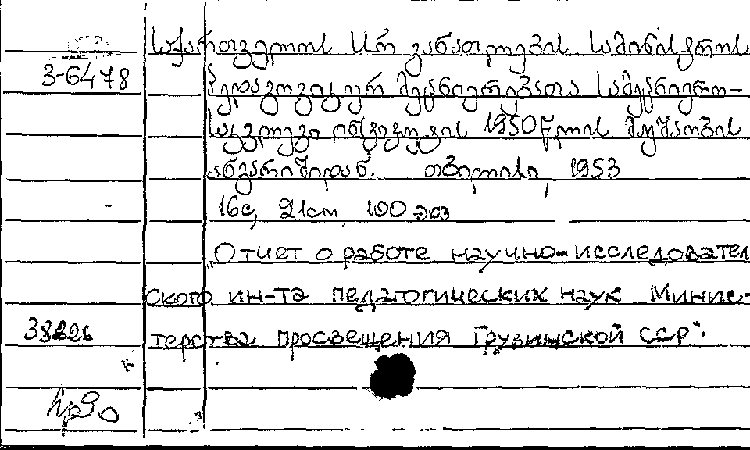 საქართველოს სსრ განათლების სამინისტროს
3-6478
პედაგოგიკურ მეცნიერებათა სამეცნიერო-
საკვლევი ინსტიტუტის 1950 წლის მუშაობის
ანგარიშიდან. თბილისი, 1953
16с, 21cm, 100 ეგზ
„Отчет о работе научно-исследовател
ского ин-та педагогических наук Минис-
38226
терства просвещения Грузинской ССР".